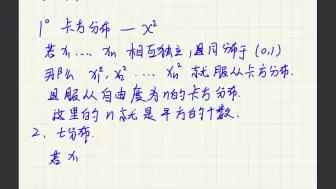 1° 卡方分布 — X²
若 x₁ ... xₙ 相互独立,且同分布于 (0,1)
那么 x₁², x₂² ... xₙ² 就服从卡方分布.
且服从自由度为n的卡方分布.
这里的 n 就是平方的个数.
2. t分布.
若 x₁